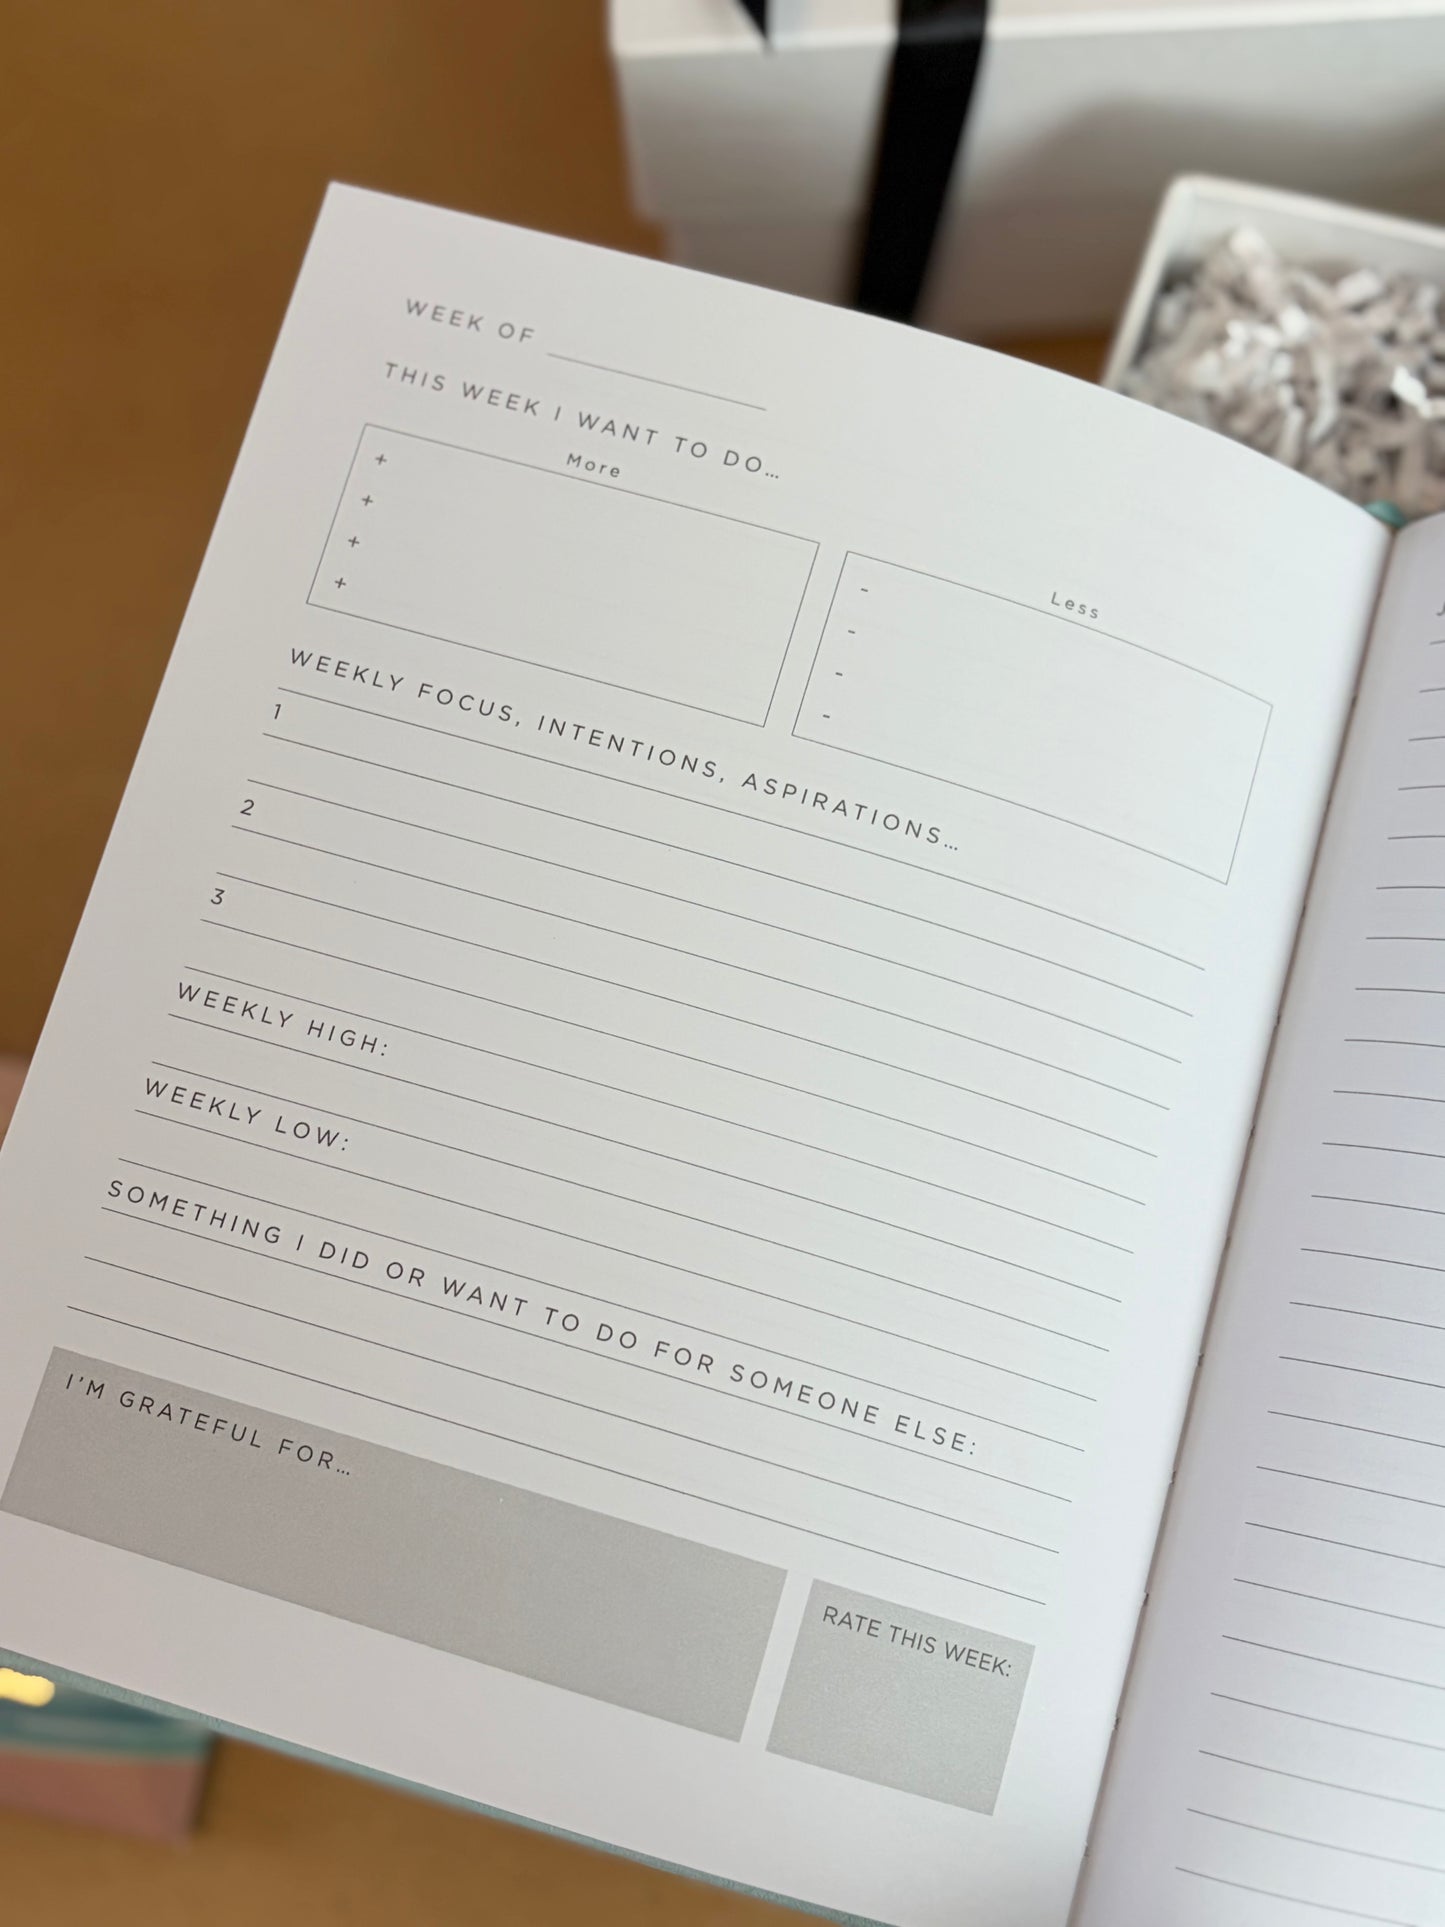 WEEK OF
THIS WEEK I WANT TO DO…
More
+
+
+
+
Less
-
-
-
-
WEEKLY FOCUS, INTENTIONS, ASPIRATIONS…
1
2
3
WEEKLY HIGH:
WEEKLY LOW:
SOMETHING I DID OR WANT TO DO FOR SOMEONE ELSE:
I'M GRATEFUL FOR…
RATE THIS WEEK: